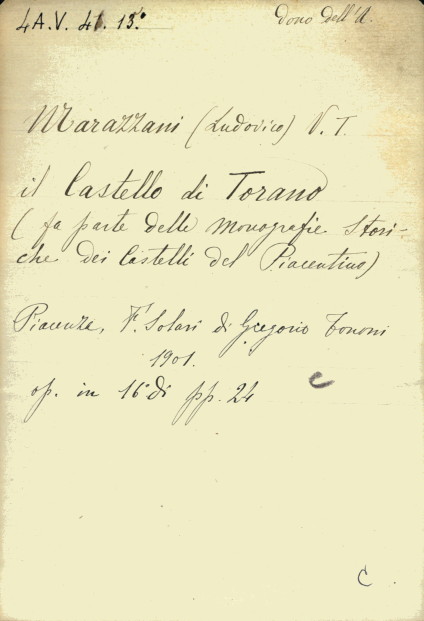 4 A. V. 41. 13.°
dono dell'A.
Marazzani (Ludovico) V. T.
il Castello di Torano
( fa parte delle monografie Stori-
che dei Castelli del Piacentino)
Piacenza, F. Solari di Gregorio Tononi
1901.
op. in 16° di pp. 24
C
C